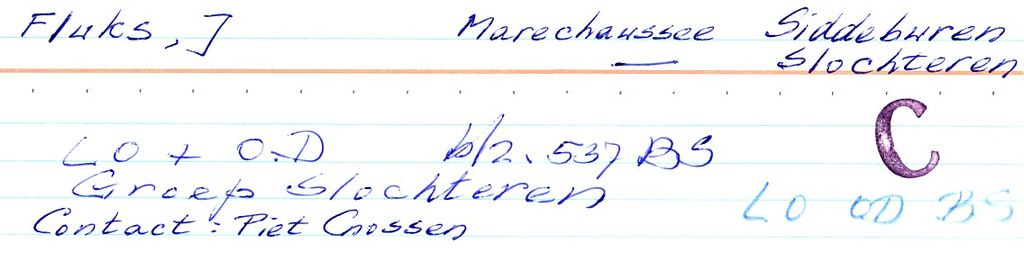 Fluks, J Marechaussee Siddeburen
Slochteren
C
LO + O.D b/2.537 BS
Groep Slochteren
LO OD BS
Contact: Piet Cnossen